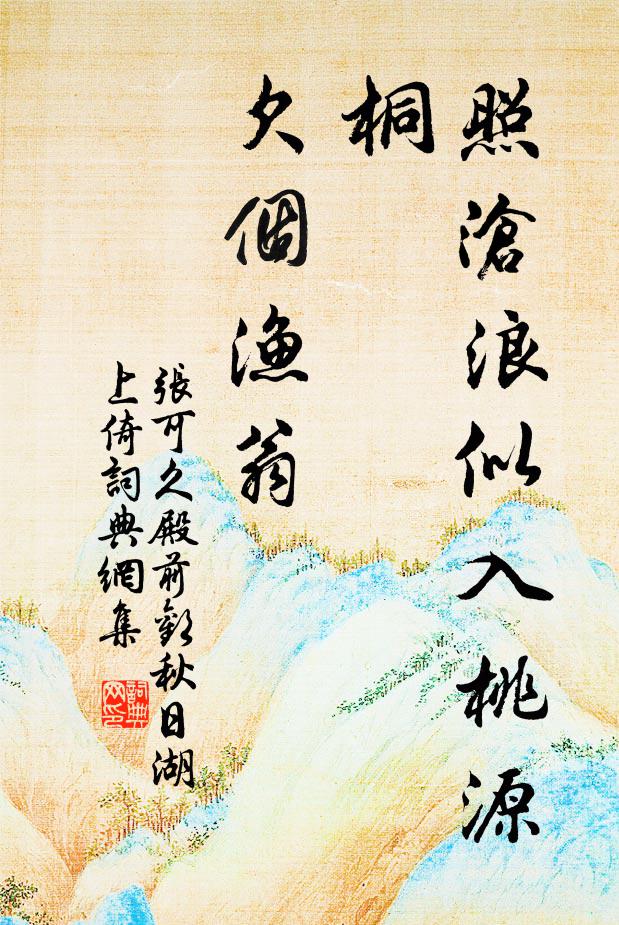 照滄浪似入桃源
桐
欠個漁翁
張可久殿前歡秋日湖
上倚詞典網集
詞典
网印